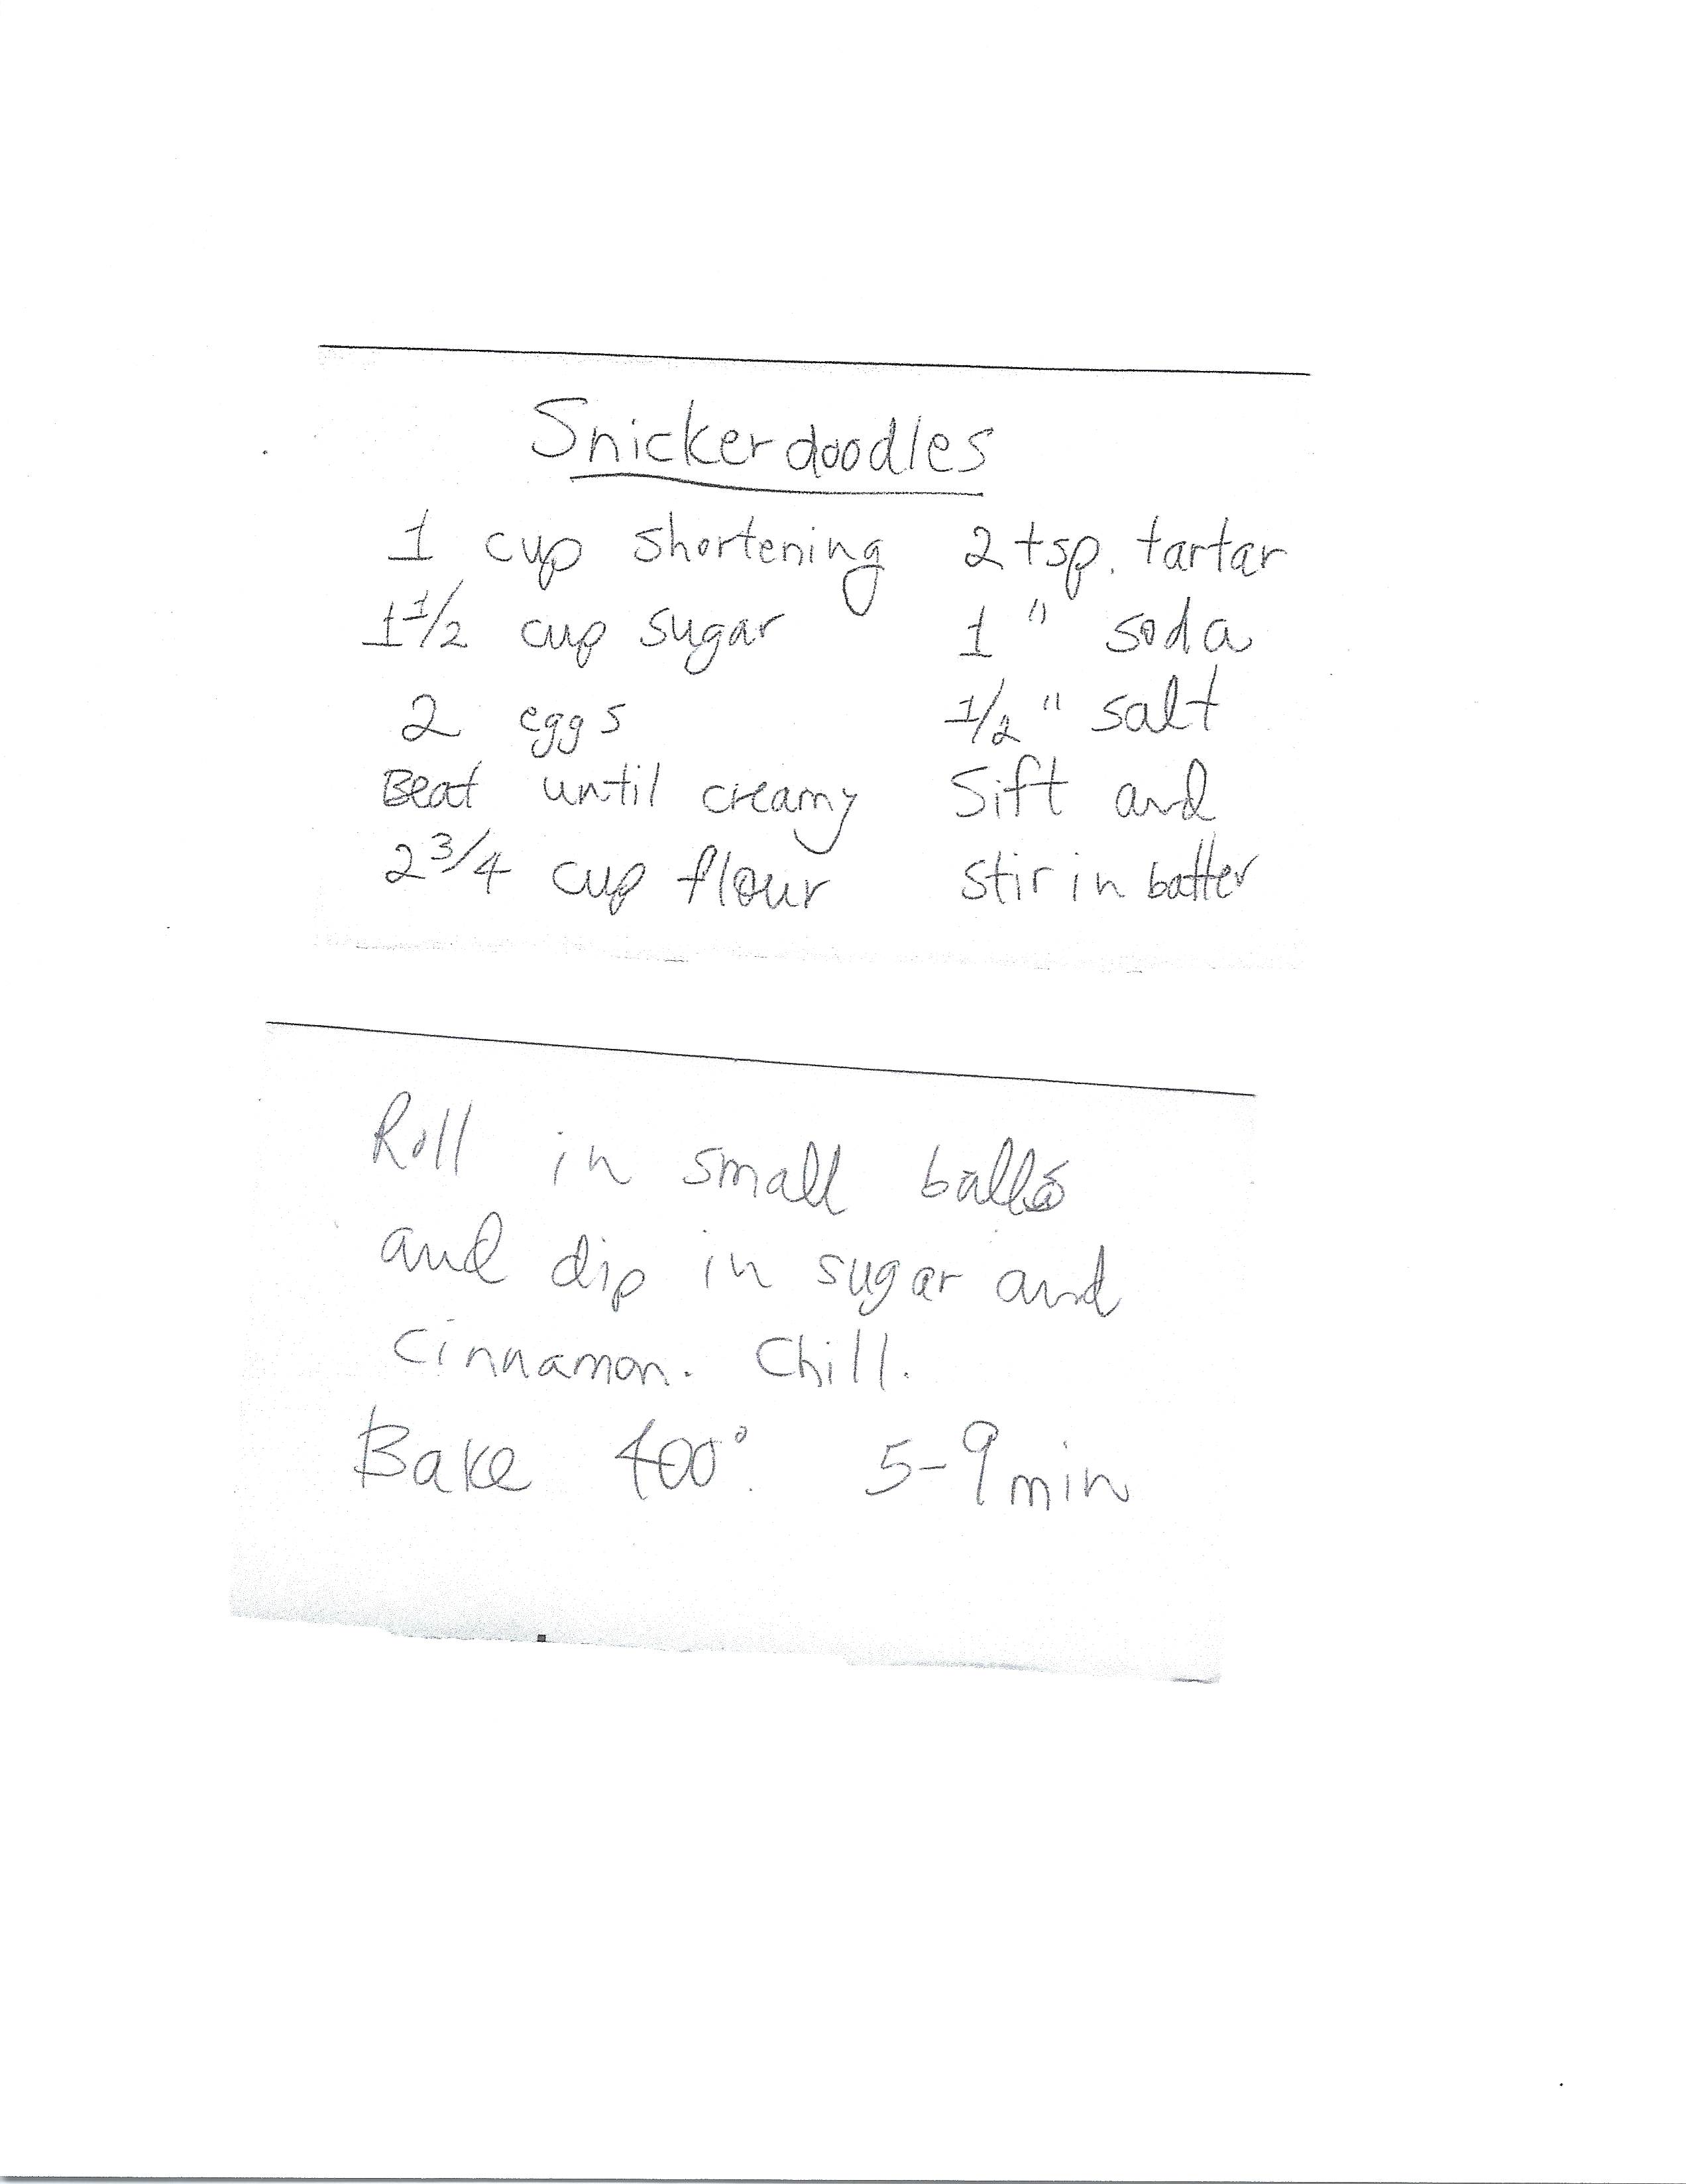 Snickerdoodles
1 cup shortening
1 1/2 cup sugar
2 eggs
Beat until creamy
2 3/4 cup flour
2 tsp. tartar
1 " soda
1/2 " salt
Sift and
stir in batter
Roll in small balls
and dip in sugar and
cinnamon. Chill.
Bake 400°. 5-9 min